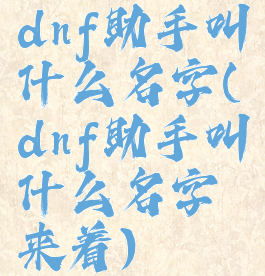 dnf助手叫
什么名字(
dnf助手叫
什么名字
来着)